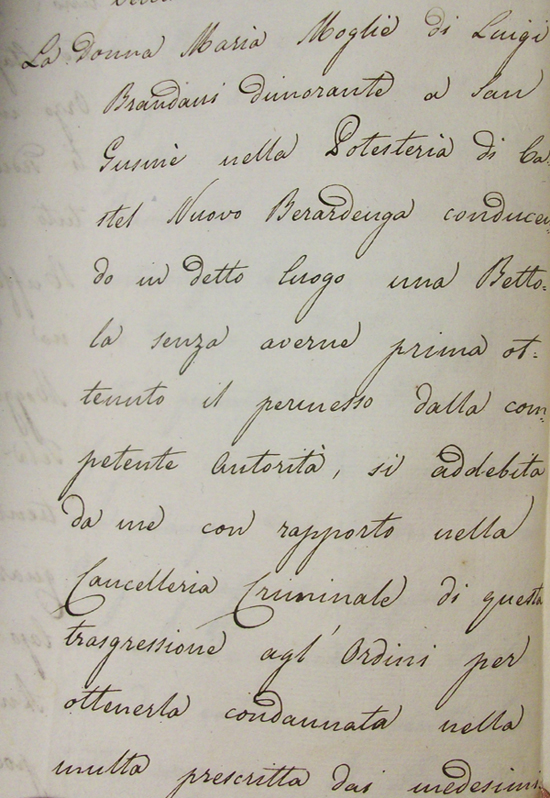 La donna Maria Moglie di Luigi
Brandani dimorante a San
Gusmè nella Potesteria di Ca
stel Nuovo Berardenga conducen=
do in detto luogo una Betto=
la senza averne prima ot=
tenuto il permesso dalla com=
petente Autorità, si addebita
da me con rapporto nella
Cancelleria Criminale di questa
trasgressione agl' Ordini per
ottenerla condannata nella
multa prescritta dai medesimi